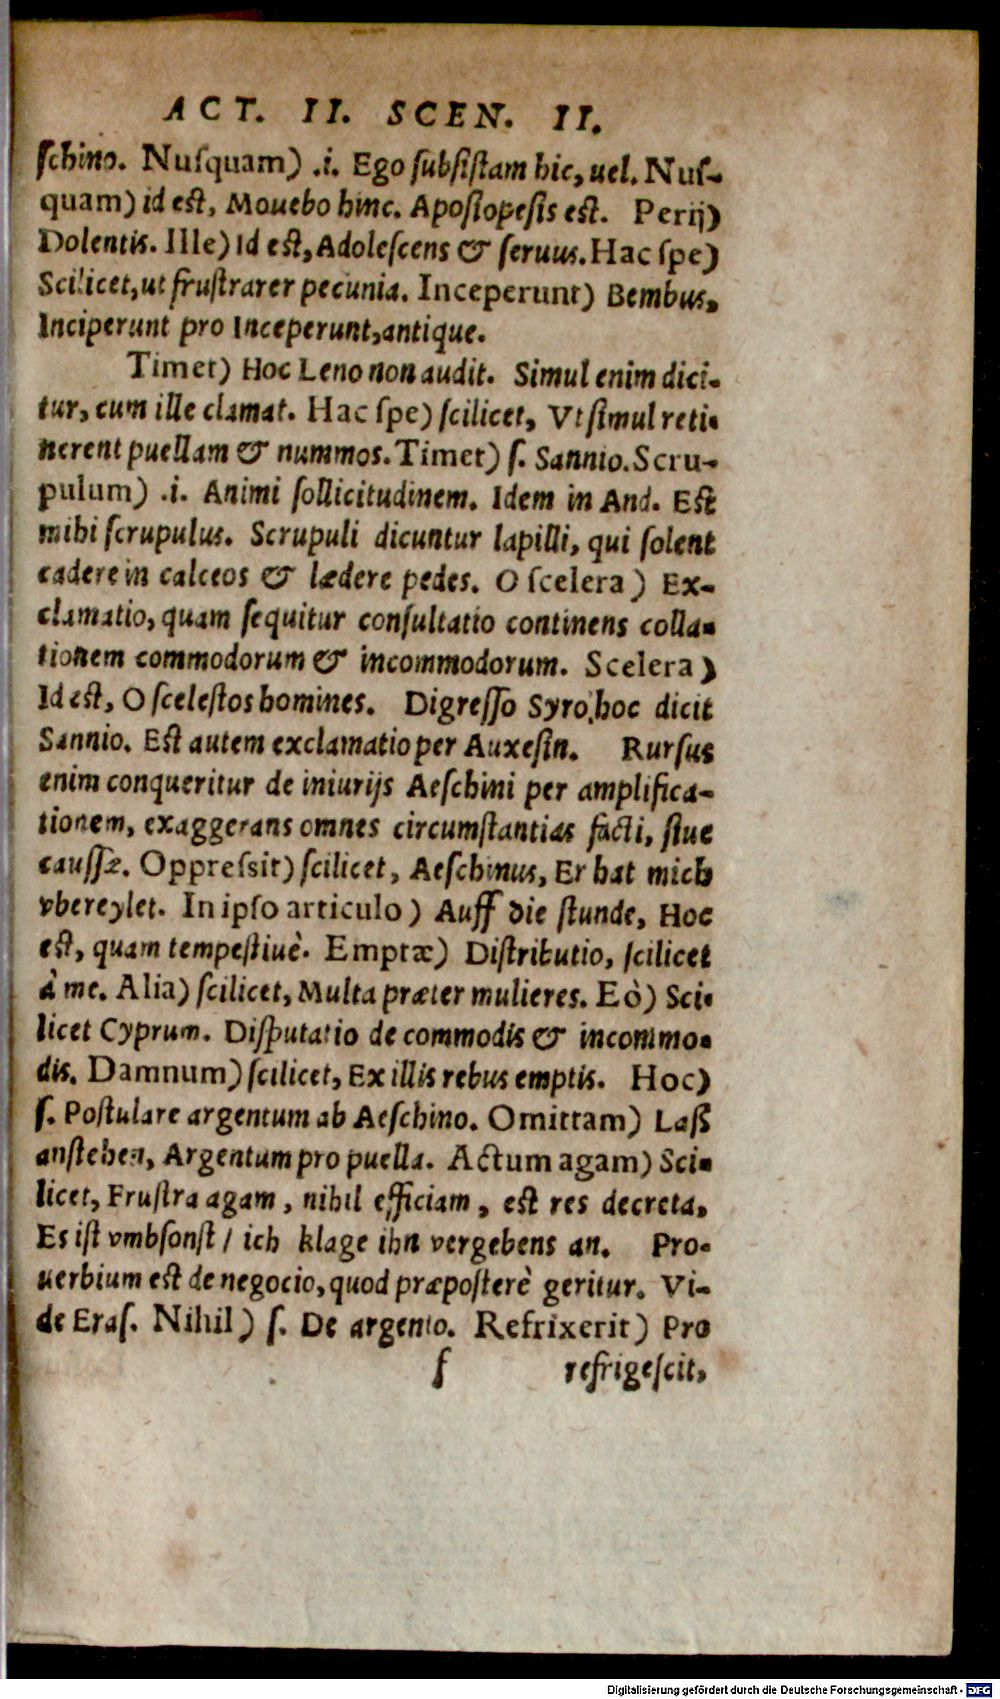 ACT. II. SCEN. II.
ſchino. Nuſquam) .i. Ego ſubſiſtam hic, uel. Nuſ-
quam) id eſt, Mouebo hinc. Apoſiopeſis eſt. Perij)
Dolentis. Ille) Id eſt, Adoleſcens & ſeruus. Hac ſpe)
Scilicet, ut fruſtrarer pecunia. Inceperunt) Bembus,
Inciperunt pro Inceperunt, antique.
Timet) Hoc Leno non audit. Simul enim dici-
tur, cum ille clamat. Hac ſpe) ſcilicet, Vt ſimul reti-
nerent puellam & nummos. Timet) ſ. Sannio. Scru-
pulum) .i. Animi ſollicitudinem. Idem in And. Eſt
mihi ſcrupulus. Scrupuli dicuntur lapilli, qui ſolent
cadere in calceos & lædere pedes. O ſcelera) Ex-
clamatio, quam ſequitur conſultatio continens colla-
tionem commodorum & incommodorum. Scelera)
Id eſt, O ſceleſtos homines. Digreſſo Syro hoc dicit
Sannio. Eſt autem exclamatio per Auxeſin. Rurſus
enim conqueritur de iniurijs Aeſchini per amplifica-
tionem, exaggerans omnes circumſtantias facti, ſiue
cauſſæ. Oppreſsit) ſcilicet, Aeſchinus, Er hat mich
vbereylet. In ipſo articulo) Auff die ſtunde, Hoc
eſt, quam tempeſtiuè. Emptæ) Diſtributio, ſcilicet
à me. Alia) ſcilicet, Multa præter mulieres. Eò) Sci-
licet Cyprum. Diſputatio de commodis & incommo-
dis. Damnum) ſcilicet, Ex illis rebus emptis. Hoc)
ſ. Poſtulare argentum ab Aeſchino. Omittam) Laß
anſtehen, Argentum pro puella. Actum agam) Sci-
licet, Fruſtra agam, nihil efficiam, eſt res decreta,
Es iſt vmbſonſt / ich klage ihn vergebens an. Pro-
uerbium eſt de negocio, quod præpoſterè geritur. Vi-
de Eraſ. Nihil) ſ. De argento. Refrixerit) Pro
f refrigeſcit,
Digitalisierung gefördert durch die Deutsche Forschungsgemeinschaft - DFG